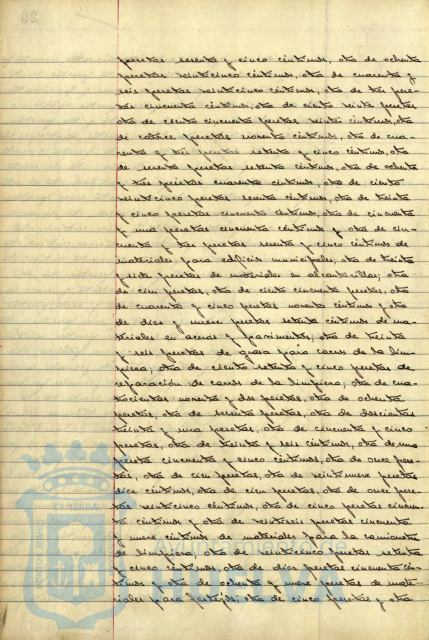 pesetas sesenta y cinco céntimos, otra de ochenta
pesetas veinticinco céntimos, otra de cuarenta y
seis pesetas veinticinco céntimos, otra de tres pese-
tas cincuenta céntimos, otra de ciento veinte pesetas
otra de ciento cincuenta pesetas veinte céntimos, otra
de catorce pesetas noventa céntimos, otra de cua-
renta y tres pesetas setenta y cinco céntimos, otra
de sesenta pesetas setenta céntimos, otra de ochenta
y tres pesetas cuarenta céntimos, otra de ciento
veinticinco pesetas sesenta céntimos, otra de treinta
y cinco pesetas cincuenta céntimos, otra de cincuenta
y una pesetas cincuenta céntimos y otra de cin-
cuenta y tres pesetas sesenta y cinco céntimos de
materiales para edificios municipales; otra de treinta
y siete pesetas de materiales en alcantarillas; otra
de cien pesetas, otra de ciento cincuenta pesetas, otra
de cuarenta y cinco pesetas noventa céntimos y otra
de diez y nueve pesetas setenta céntimos de ma-
teriales en aceras y pavimentos; otra de treinta
y seis pesetas de grasa para carros de la lim-
pieza; otra de ciento setenta y cinco pesetas de
reparación de carros de la limpieza; otra de cua-
trocientas noventa y dos pesetas, otra de ochenta
pesetas, otra de sesenta pesetas, otra de doscientas
treinta y una pesetas, otra de cincuenta y cinco
pesetas, otra de treinta y seis céntimos, otra de una
peseta cincuenta y cinco céntimos, otra de once pese-
tas, otra de cien pesetas, otra de veintinueve pesetas
diez céntimos, otra de cien pesetas, otra de once pese-
tas veinticinco céntimos, otra de cinco pesetas cincuen-
ta céntimos y otra de veintiseis pesetas cincuenta
y nueve céntimos, de materiales para la camioneta
de limpieza; otra de veinticinco pesetas setenta
y cinco céntimos, otra de diez pesetas cincuenta cén-
timos y otra de ochenta y nueve pesetas de mate-
riales para festejos; otra de cinco pesetas y otra